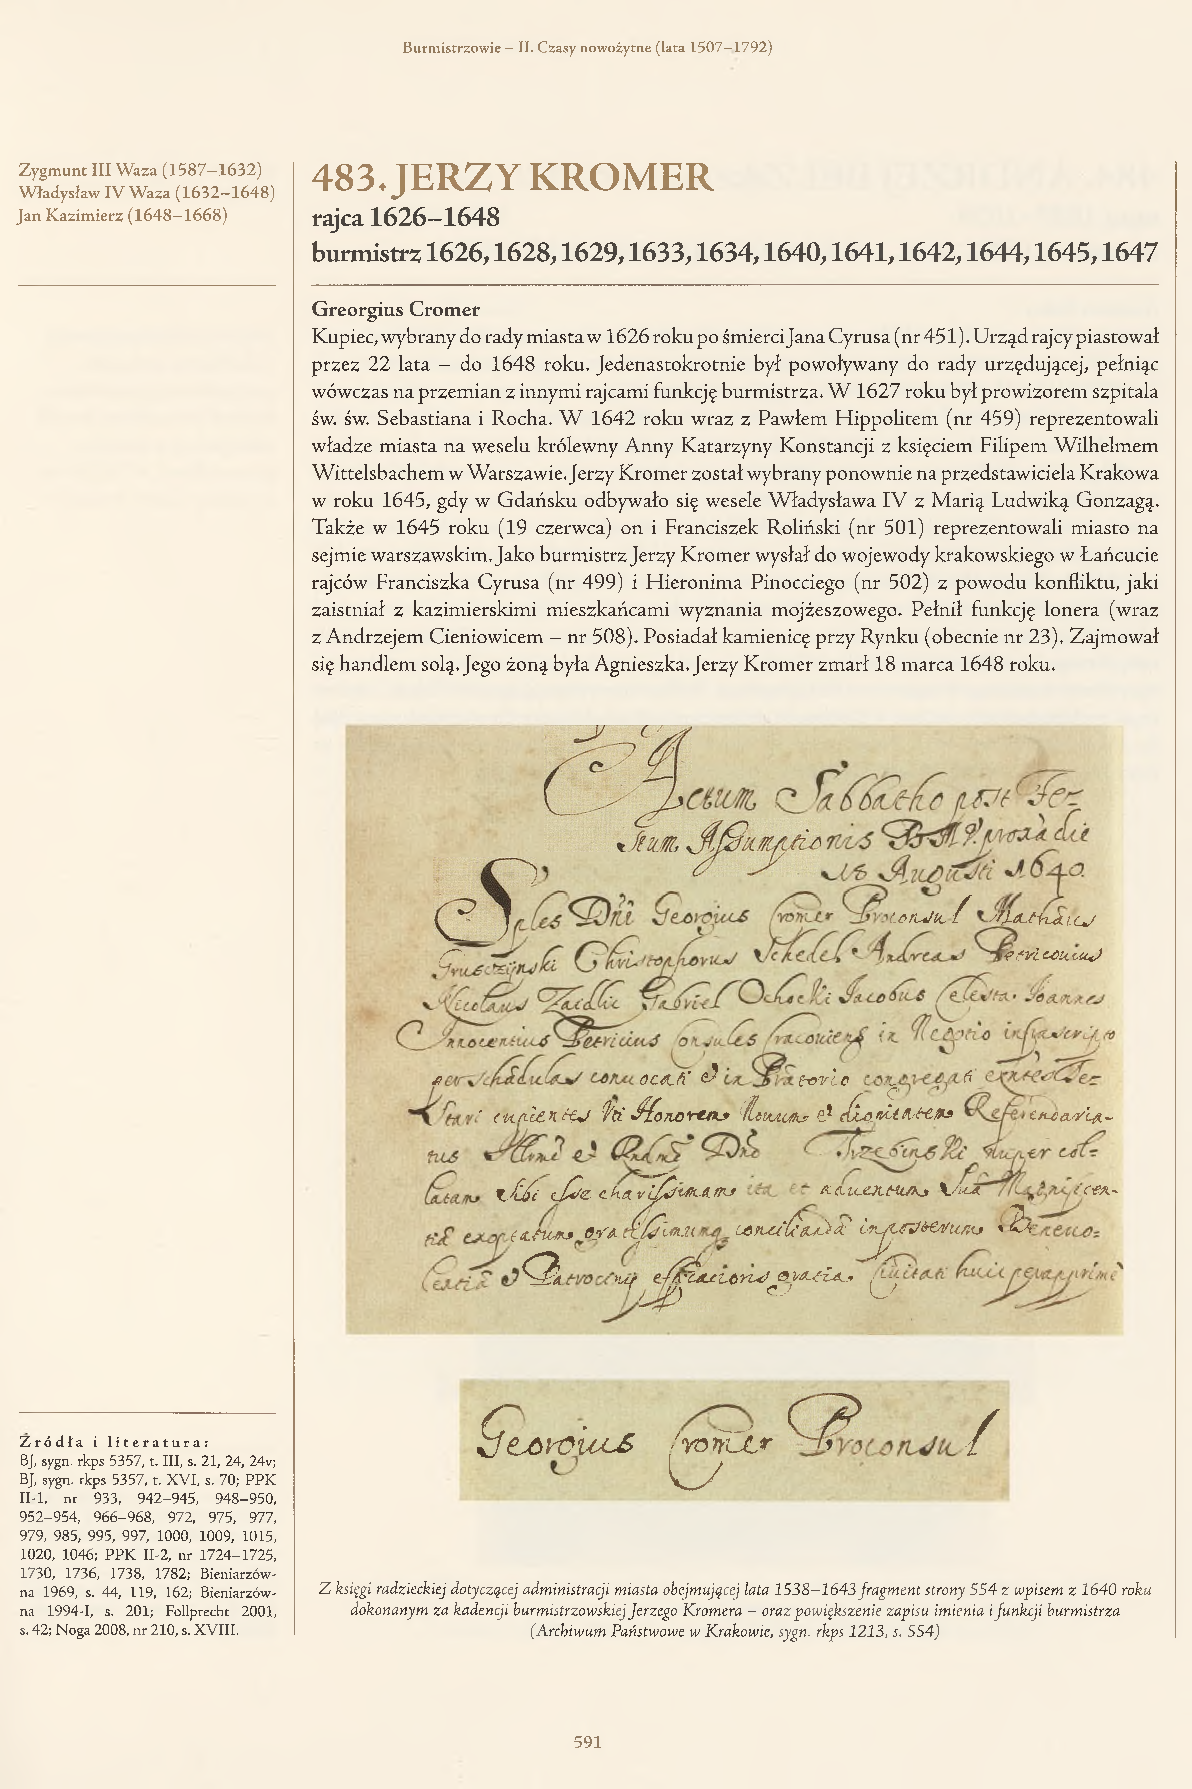 Burmistrzowie – II. Czasy nowożytne (lata 1507–1792)
Zygmunt III Waza (1587–1632)
Władysław IV Waza (1632–1648)
Jan Kazimierz (1648–1668)
483. JERZY KROMER
rajca 1626–1648
burmistrz 1626, 1628, 1629, 1633, 1634, 1640, 1641, 1642, 1644, 1645, 1647
Greorgius Cromer
Kupiec, wybrany do rady miasta w 1626 roku po śmierci Jana Cyrusa (nr 451). Urząd rajcy piastował
przez 22 lata – do 1648 roku. Jedenastokrotnie był powoływany do rady urzędującej, pełniąc
wówczas na przemian z innymi rajcami funkcję burmistrza. W 1627 roku był prowizorem szpitala
św. św. Sebastiana i Rocha. W 1642 roku wraz z Pawłem Hippolitem (nr 459) reprezentowali
władze miasta na weselu królewny Anny Katarzyny Konstancji z księciem Filipem Wilhelmem
Wittelsbachem w Warszawie. Jerzy Kromer został wybrany ponownie na przedstawiciela Krakowa
w roku 1645, gdy w Gdańsku odbywało się wesele Władysława IV z Marią Ludwiką Gonzagą.
Także w 1645 roku (19 czerwca) on i Franciszek Roliński (nr 501) reprezentowali miasto na
sejmie warszawskim. Jako burmistrz Jerzy Kromer wysłał do wojewody krakowskiego w Łańcucie
rajców Franciszka Cyrusa (nr 499) i Hieronima Pinocciego (nr 502) z powodu konfliktu, jaki
zaistniał z kazimierskimi mieszkańcami wyznania mojżeszowego. Pełnił funkcję lonera (wraz
z Andrzejem Cieniowicem – nr 508). Posiadał kamienicę przy Rynku (obecnie nr 23). Zajmował
się handlem solą. Jego żoną była Agnieszka. Jerzy Kromer zmarł 18 marca 1648 roku.
Actum Sabbatho post Fe-
stum Assumptionis die
18 Augusti 1640.
Georgius Cromer Proconsul
Christophorus Schedel Andreas Petricouius
Nicolaus Zaidlic Gabriel Ochocki Jacobus Celesta Joannes
Innocentius Petricius Consules in Negotio infrascripto
per schedulas conuocati et in Prætorio congregati
cupientes Vti Honorem Nouum et dignitatem Referendaria-
tus Trzebinski nuper col-
latam Sibi esse charissimam ita et aduentum
gratissimum inposterum
gratia Ciuitati huic
Georgius Cromer Proconsul
Źródła i literatura:
BJ, sygn. rkps 5357, t. III, s. 21, 24, 24v;
BJ, sygn. rkps 5357, t. XVI, s. 70; PPK
II-1, nr 933, 942–945, 948–950,
952–954, 966–968, 972, 975, 977,
979, 985, 995, 997, 1000, 1009, 1015,
1020, 1046; PPK II-2, nr 1724–1725,
1730, 1736, 1738, 1782; Bieniarzów-
na 1969, s. 44, 119, 162; Bieniarzów-
na 1994-I, s. 201; Follprecht 2001,
s. 42; Noga 2008, nr 210, s. XVIII.
Z księgi radzieckiej dotyczącej administracji miasta obejmującej lata 1538–1643 fragment strony 554 z wpisem z 1640 roku
dokonanym za kadencji burmistrzowskiej Jerzego Kromera – oraz powiększenie zapisu imienia i funkcji burmistrza
(Archiwum Państwowe w Krakowie, sygn. rkps 1213, s. 554)
591